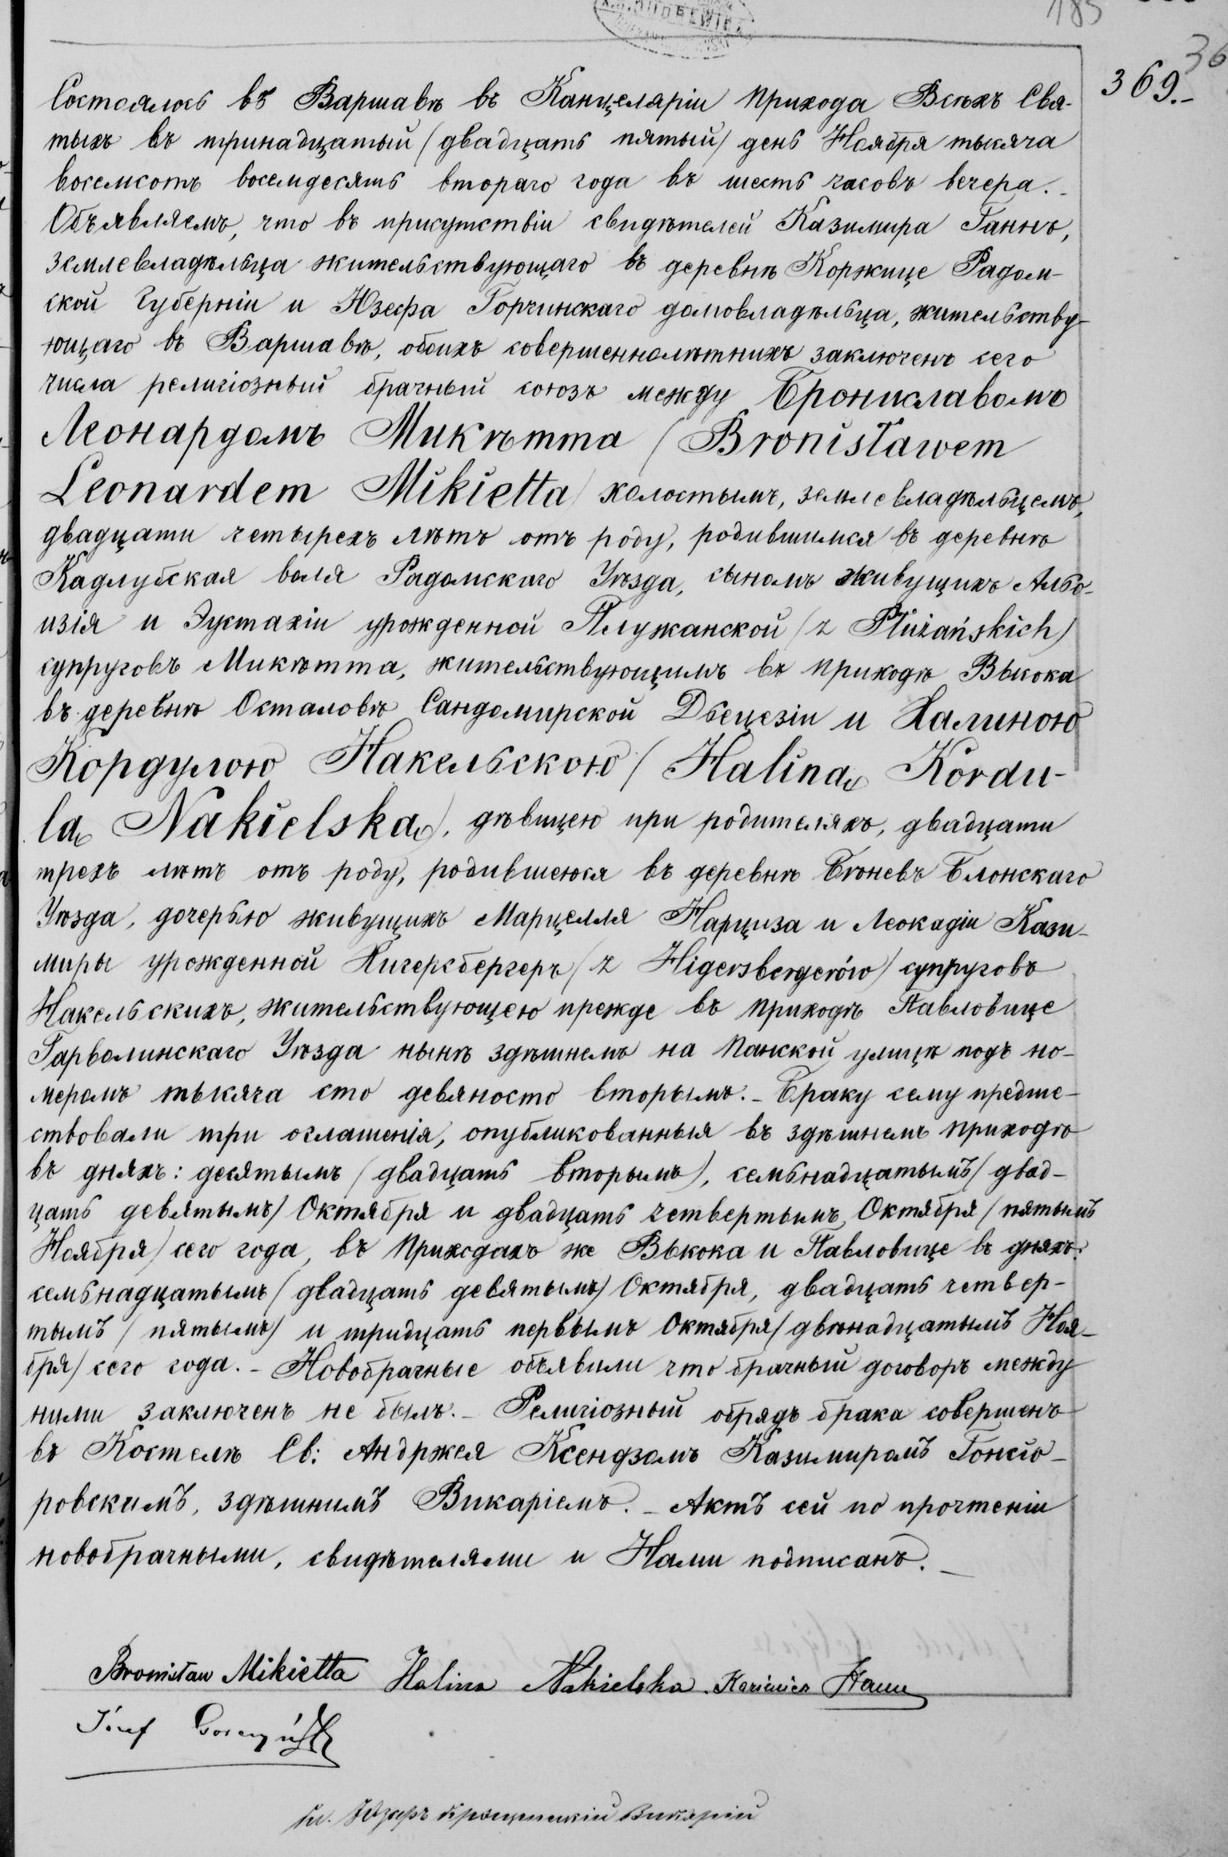 185
36
369.-
Состоялось въ Варшавѣ въ Канцеляріи прихода Всѣхъ Свя-
тыхъ въ тринадцатый (двадцать пятый) день Ноября тысяча
восемсотъ восемдесятъ втораго года въ шесть часовъ вечера.-
Объявляемъ, что въ присутствіи свидѣтелей Казимира Ганнъ,
землевладѣльца жительствующаго въ деревнѣ Коржице Радом-
ской Губерніи и Юзефа Горчинскаго домовладѣльца, жительству-
ющаго въ Варшавѣ, обоихъ совершеннолѣтнихъ заключенъ сего
числа религіозный брачный союзъ между Брониславомъ
Леонардомъ Микѣтта (Bronisławem
Leonardem Mikietta) холостымъ, землевладѣльцемъ,
двадцати четырехъ лѣтъ отъ роду, родившимся въ деревнѣ
Кадлубская воля Радомскаго Уѣзда, сыномъ живущихъ Ало-
изія и Эустахіи урожденной Плужанской (z Płużańskich)
супруговъ Микѣтта, жительствующимъ въ приходѣ Высока
въ деревнѣ Осталовѣ Сандомирской Діецезіи и Халиною
Кордулою Накельскою (Haliną Kordu-
lą Nakielską), дѣвицею при родителяхъ, двадцати
трехъ лѣтъ отъ роду, родившеюся въ деревнѣ Бѣневъ Блонскаго
Уѣзда, дочерью живущихъ Марцелля Нарциза и Леокадіи Кази-
миры урожденной Хигерсбергеръ (z Higersbergerów) супруговъ
Накельскихъ, жительствующею прежде въ приходѣ Павловице
Гарволинскаго Уѣзда нынѣ здѣшнемъ на Панской улицѣ подъ но-
меромъ тысяча сто девяносто вторымъ.- Браку сему предше-
ствовали три оглашенія, опубликованныя въ здѣшнемъ приходѣ
въ дняхъ: десятымъ (двадцать вторымъ), семьнадцатымъ (двад-
цать девятымъ) Октября и двадцать четвертымъ Октября (пятымъ
Ноября) сего года, въ приходахъ же Высока и Павловице въ дняхъ:
семьнадцатымъ (двадцать девятымъ) Октября, двадцать четвер-
тымъ (пятымъ) и тридцать первымъ Октября (двѣнадцатымъ Ноя-
бря) сего года.- Новобрачные объявили что брачный договоръ между
ними заключенъ не былъ.- Религіозный обрядъ брака совершенъ
въ Костелѣ Св: Андржея Ксендзомъ Казимиромъ Гонсіо-
ровскимъ, здѣшнимъ Викаріемъ.- Актъ сей по прочтеніи
новобрачными, свидѣтелями и Нами подписанъ.-
Bronisław Mikietta Halina Nakielska Kazimierz Hann
Józef Gorczyński
Кс. Юзефъ Викарій